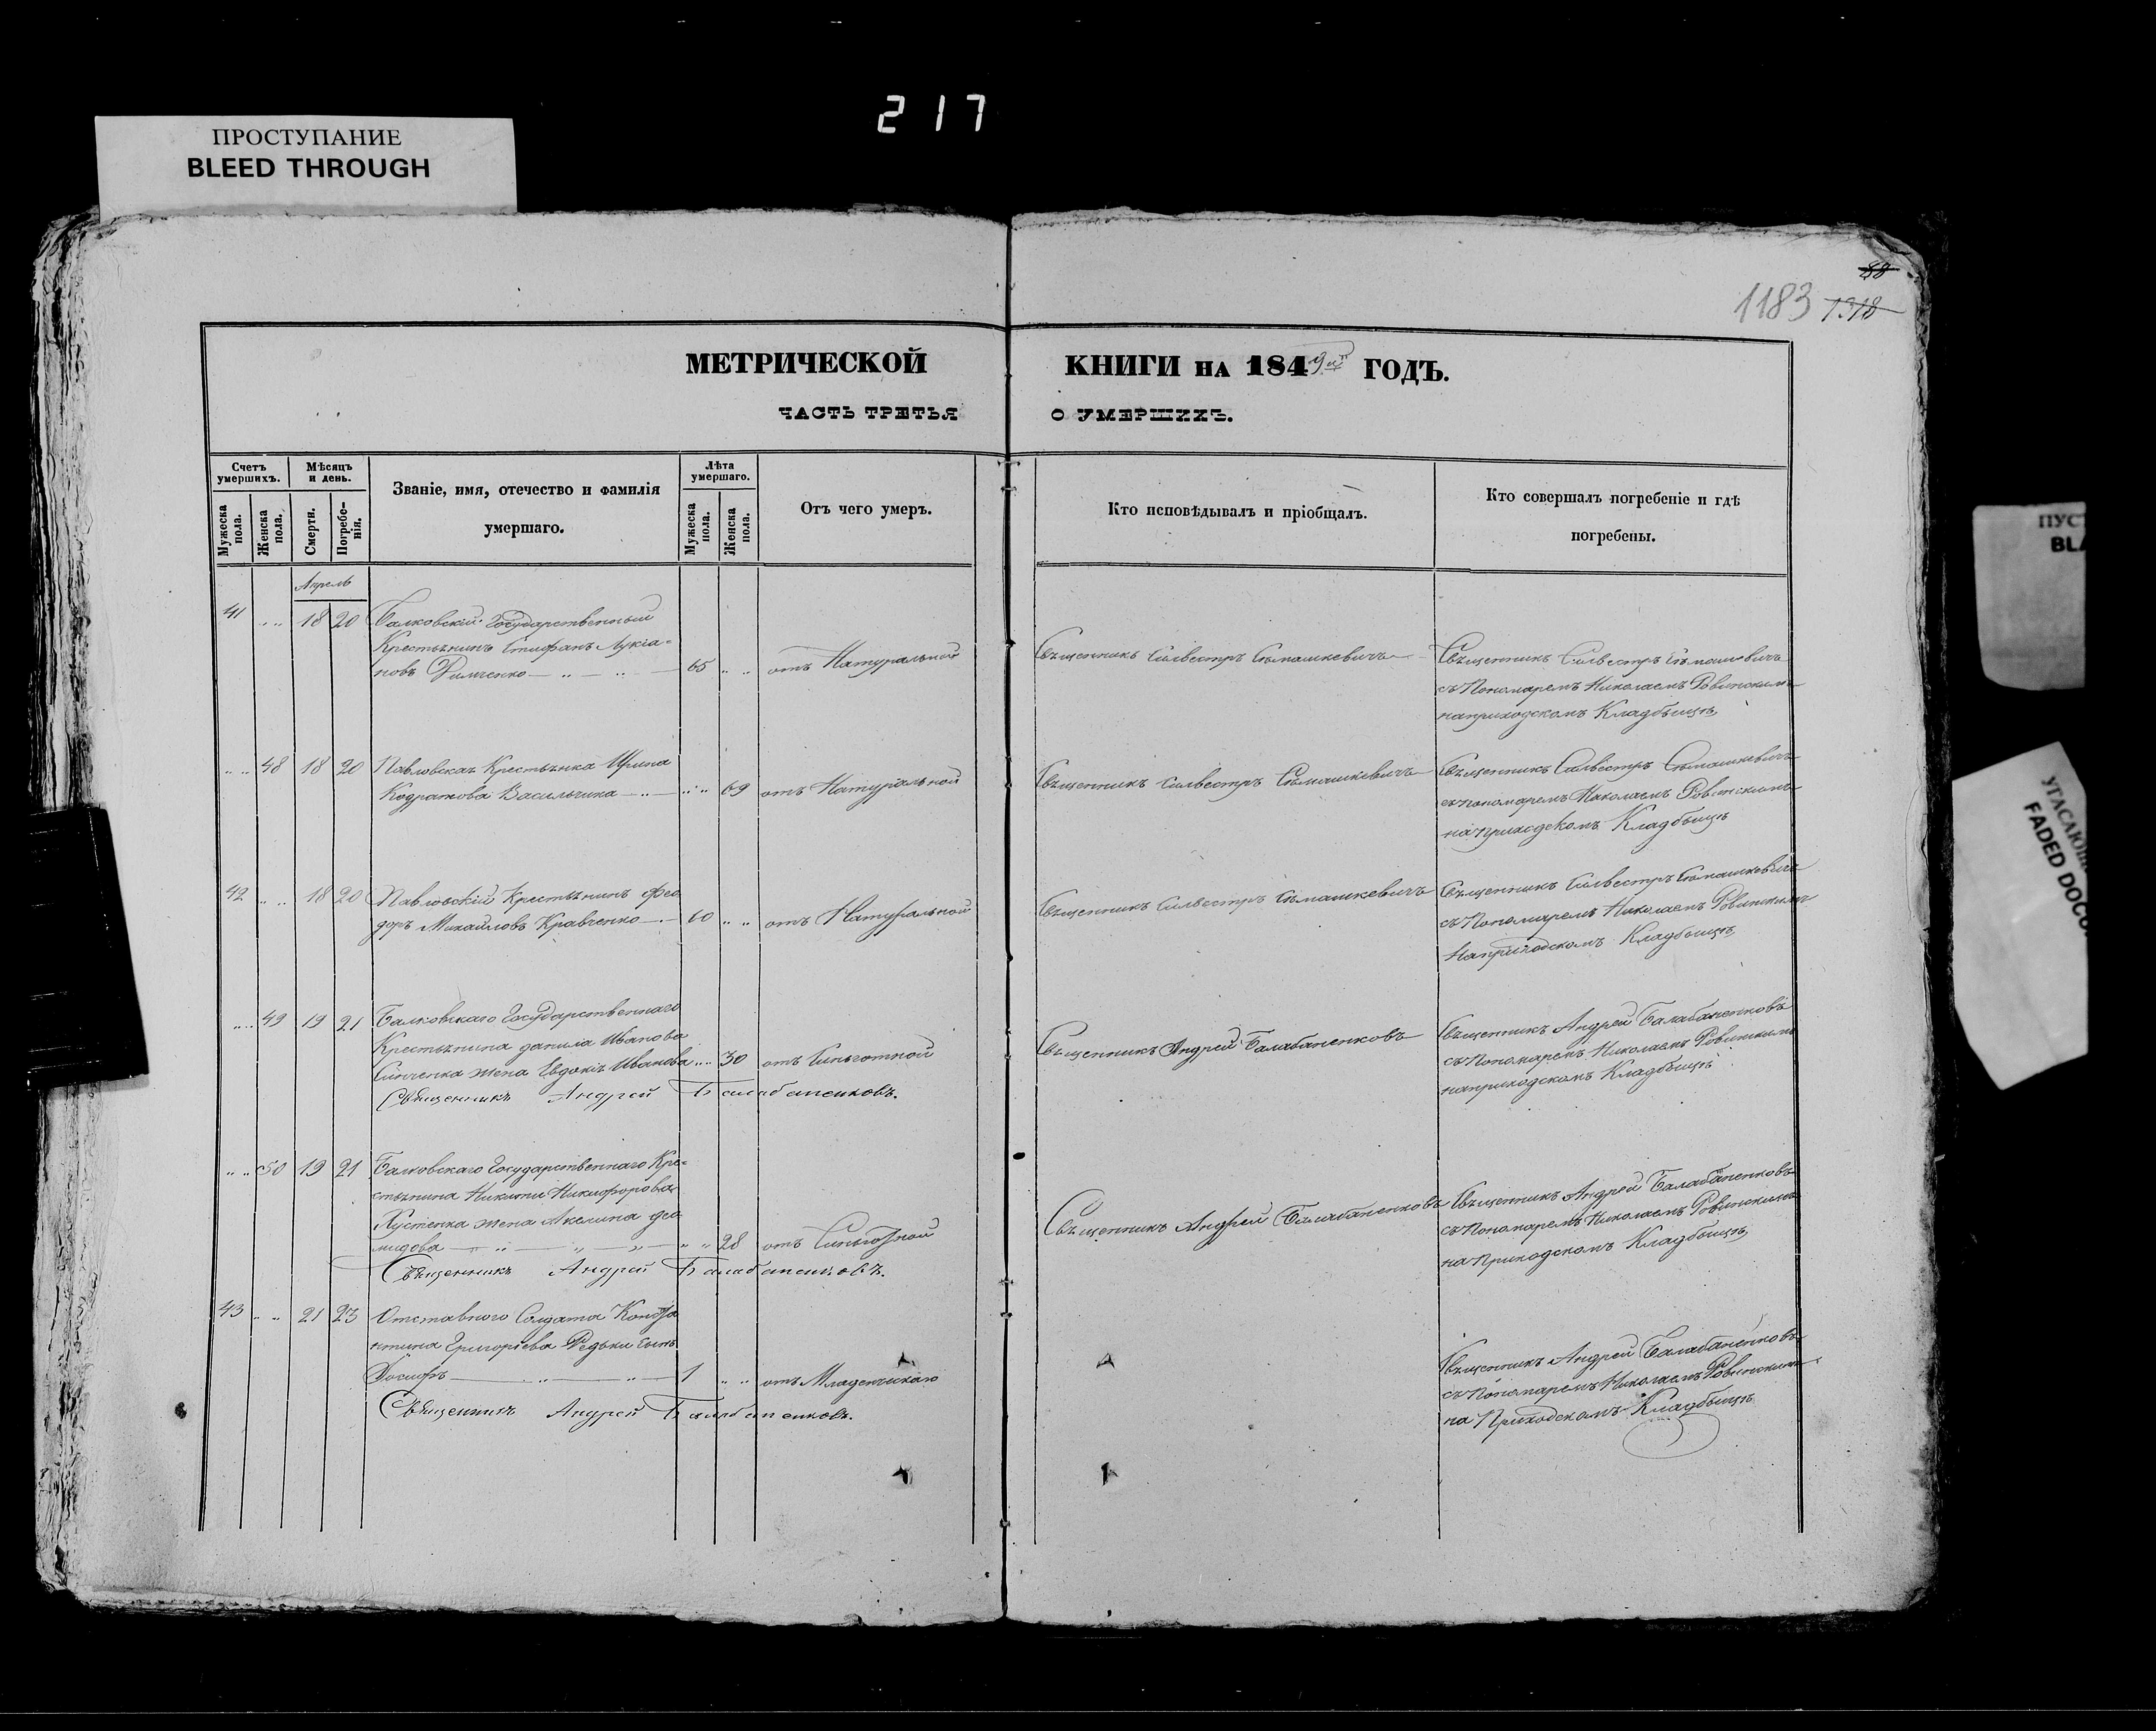 217
ПРОСТУПАНИЕ
BLEED THROUGH
88
1183 1318
МЕТРИЧЕСКОЙ КНИГИ НА 1849й ГОДЪ.
ЧАСТЬ ТРЕТЬЯ О УМЕРШИХЪ.
Счетъ умершихъ.
Мѣсяцъ и день.
Званіе, имя, отечество и фамилія умершаго.
Лѣта умершаго.
Отъ чего умеръ.
Кто исповѣдывалъ и пріобщалъ.
Кто совершалъ погребеніе и гдѣ погребены.
Мужеска пола.
Женска пола.
Смерти.
Погребе-нія.
Мужеска пола.
Женска пола.
Апрель
41 " " 18 20 Балковскій Государственный
Крестьянинъ Стефанъ Лукіа-
новъ 65 " " отъ Натуральной
Священникъ Силвестръ Сѣмашкевичъ
Священникъ Силвестръ Сѣмашкевичъ
съ Пономаремъ Николаемъ Ровинскимъ
на приходскомъ Кладбищѣ
" " 48 18 20 Павловская Крестьянка Ирина
Кодратова Васильчика " " 69 отъ Натуральной
Священникъ Силвестръ Сѣмашкевичъ
Священникъ Силвестръ Сѣмашкевичъ
съ пономаремъ Николаемъ Ровинскимъ
на приходскомъ Кладбищѣ
42 " " 18 20 Павловскій Крестьянинъ Фео
доръ Михайловъ Кравченко 60 " " отъ Натуральной
Священникъ Силвестръ Сѣмашкевичъ
Священникъ Силвестръ Сѣмашкевичъ
съ Пономаремъ Николаемъ Ровинскимъ
на приходскомъ Кладбищѣ
" " 49 19 21 Балковскаго Государственнаго
Крестьянина данила Иванова
Синченка жена Евдокія Иванова " " 30 отъ
Священникъ Андрей Балабаненковъ.
Священникъ Андрей Балабаненковъ
Священникъ Андрей Балабаненковъ
съ Пономаремъ Николаемъ Ровинскимъ
на приходскомъ Кладбищѣ
" " 50 19 21 Балковскаго Государственнаго Кре-
стьянина Никиты Никифорова
Хустенка жена Акелина део
мидова " " 28 отъ
Священникъ Андрей Балабаненковъ.
Священникъ Андрей Балабаненковъ
Священникъ Андрей Балабаненковъ
съ Пономаремъ Николаемъ Ровинскимъ
на Приходскомъ Кладбищѣ
43 " " 21 23 Отставного Солдата Конста
нтина Григоріева Редьки сынъ
Іосифъ 1 " " отъ Младенческаго
Священникъ Андрей Балабаненковъ.
Священникъ Андрей Балабаненковъ
съ Пономаремъ Николаемъ Ровинскимъ
на Приходскомъ Кладбищѣ
FADED DOCU